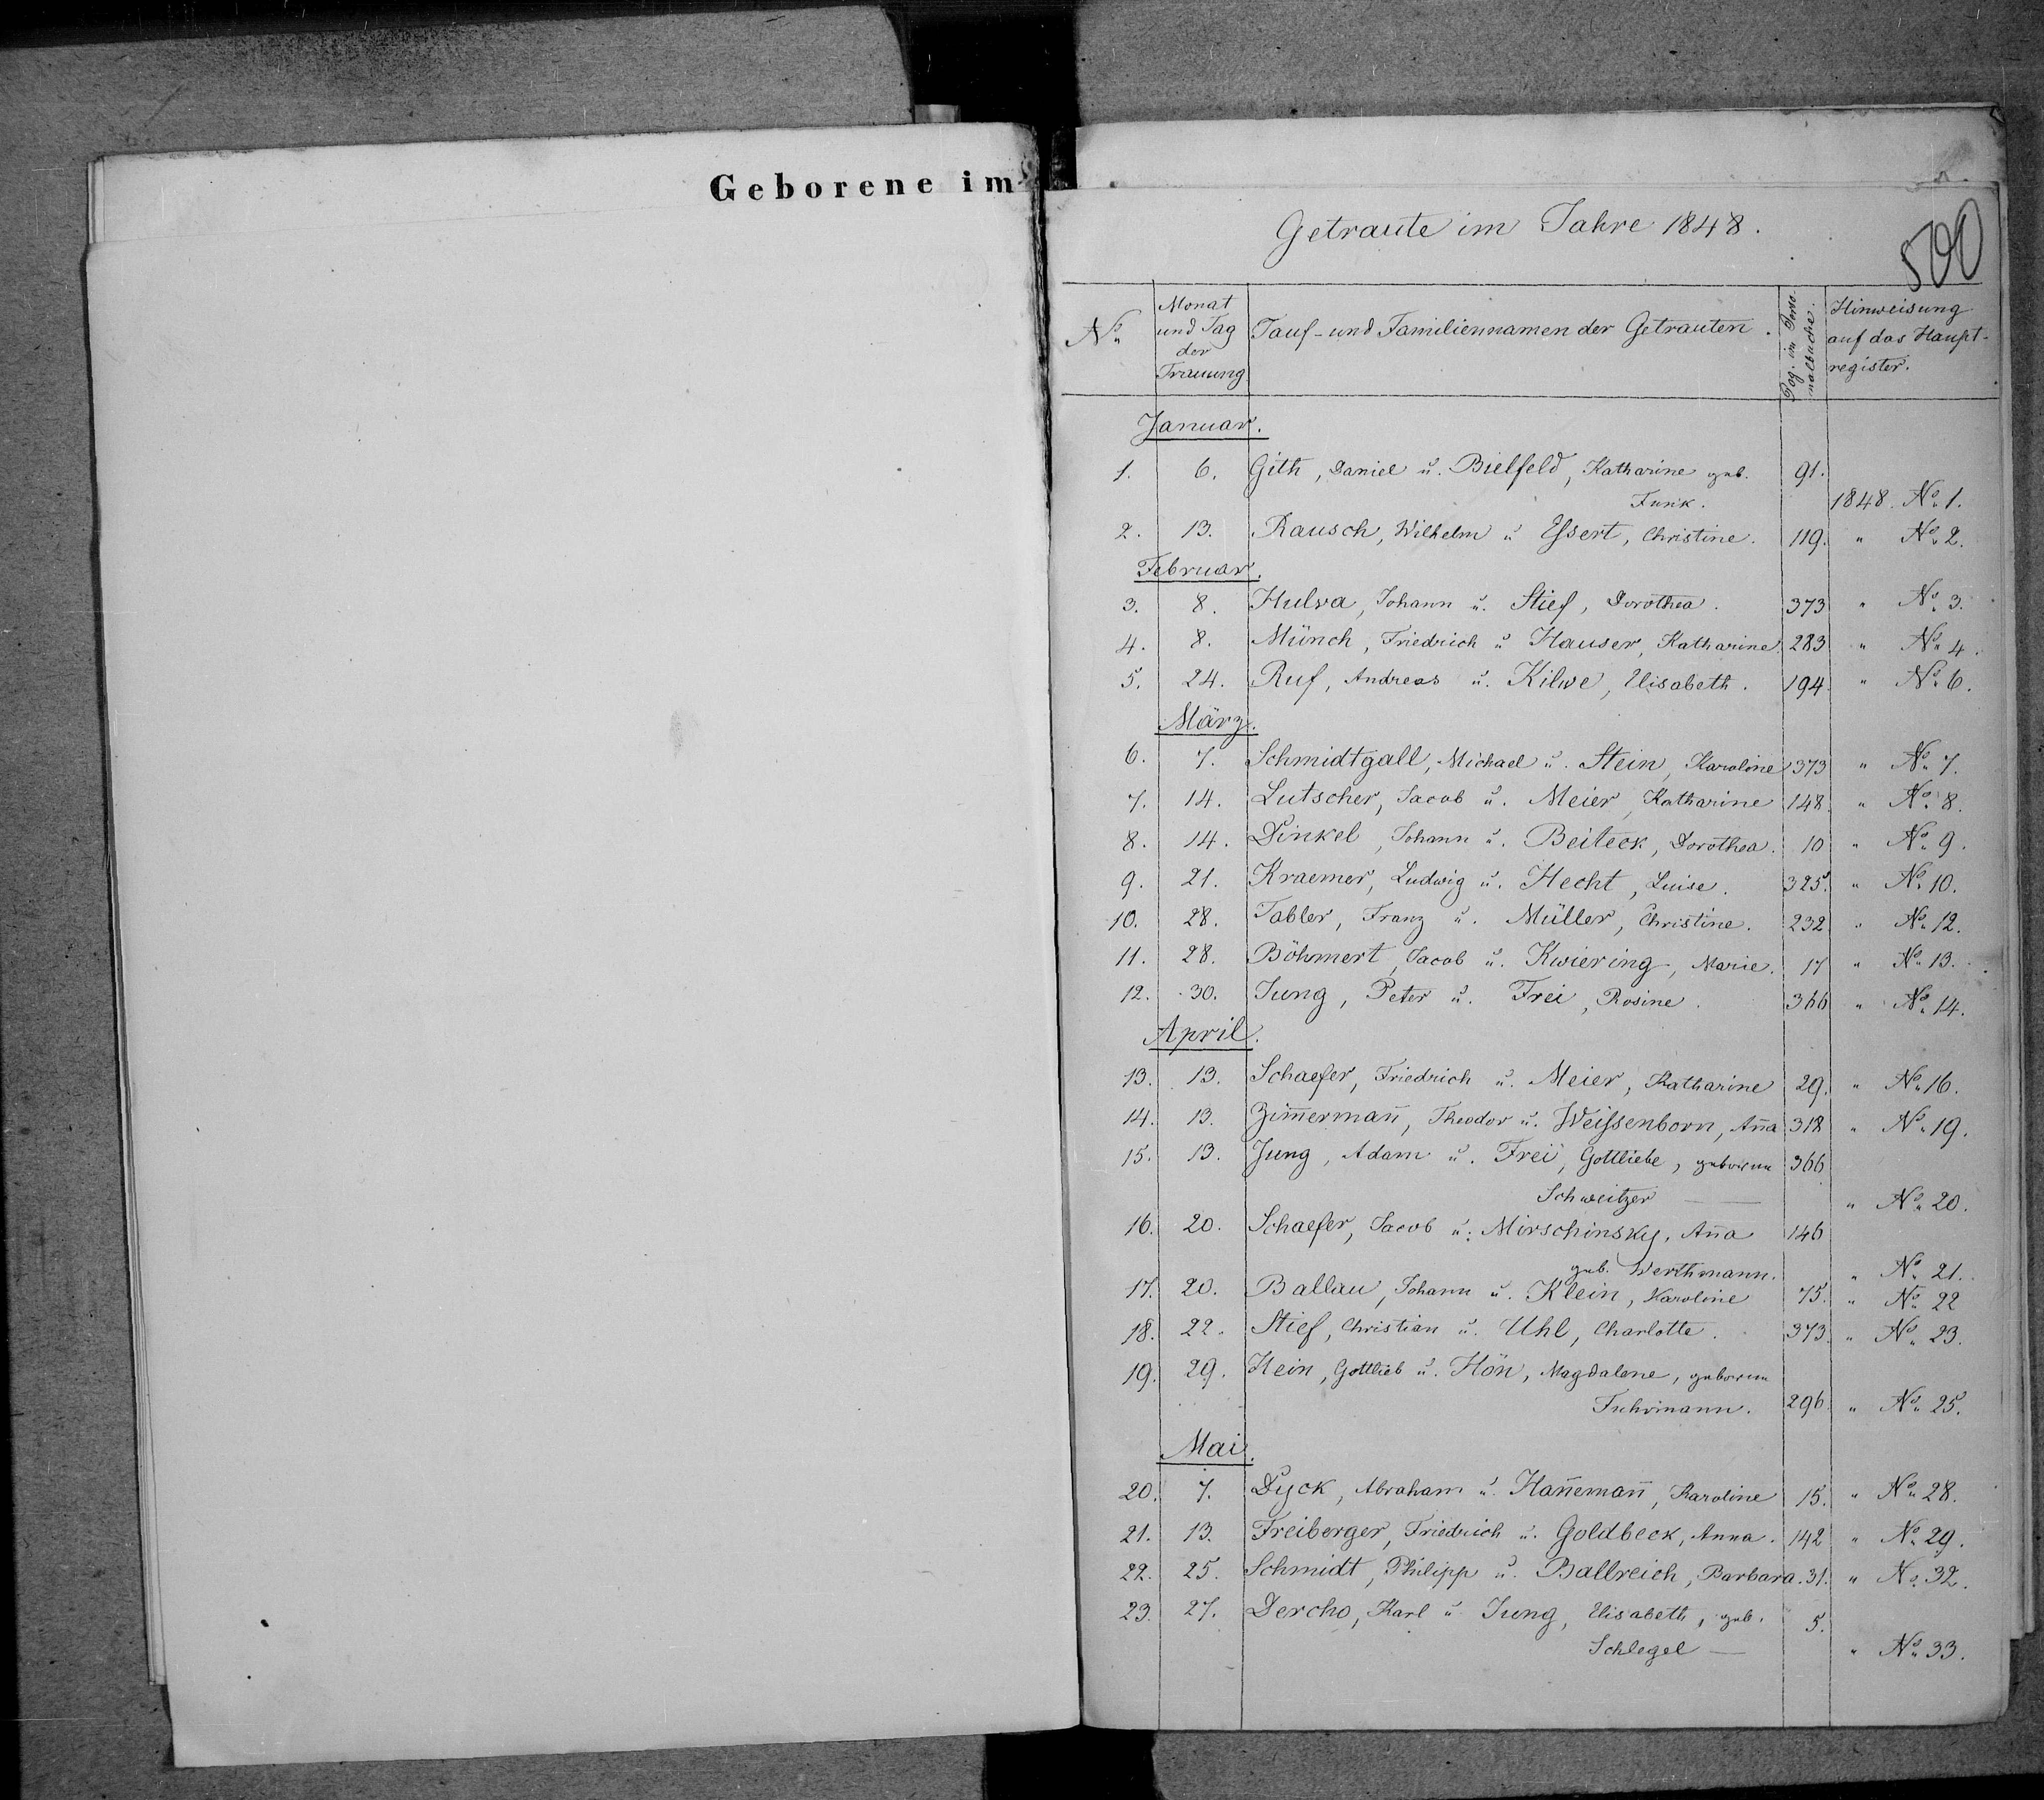 Geborene im
Getraute im Jahre 1848.
500
No
Monat und Tag der Trauung
Tauf- und Familiennamen der Getrauten.
Pag. im Personalbuche.
Hinweisung auf das Hauptregister.
Januar.
1. 6. Gith, Daniel u. Bielfeld, Katharine geb. 91.
Funk. 1848. No 1.
2. 13. Rausch, Wilhelm u Eſsert, Christine. 119. " No 2.
Februar.
3. 8. Hulva, Johann u. Stief, Dorothea. 373 " No 3.
4. 8. Münch, Friedrich u Hauser, Katharine. 283 " No 4.
5. 24. Ruf, Andreas u. Kilwe, Elisabeth. 194. " No 6.
März.
6. 7. Schmidtgall, Michael u. Stein, Karoline 373 " No 7.
7. 14. Lutscher, Jacob u. Meier, Katharine 148. " No 8.
8. 14. Dinkel, Johann u. Beiteck, Dorothea. 10 " No 9.
9. 21. Kraemer, Ludwig u. Hecht, Luise. 325. " No 10.
10. 28. Tabler, Franz u. Müller, Christine. 232 " No 12.
11. 28. Böhmert, Jacob u. Kwiering, Marie. 17 " No 13.
12. 30. Jung, Peter u. Frei, Rosine. 366 " No 14.
April.
13. 13. Schaefer, Friedrich u. Meier, Katharine 29. " No 16.
14. 13. Zim̄erman̄, Theodor u. Weiſsenborn, An̄a 318 " No 19.
15. 13. Jung, Adam u. Frei, Gottliebe, geborene 366
Schweitzer — " No 20.
16. 20. Schaefer, Jacob u. Mirschinsky, An̄a 146
geb. Werthmann. " No 21.
17. 20. Ballau, Johann u. Klein, Karoline 75. " No 22
18. 22. Stief, Christian u. Uhl, Charlotte. 373. " No 23.
19. 29. Hein, Gottlieb u. Hön, Magdalene, geborene
Fuhrmann. 296. " No 25.
Mai.
20. 7. Dyck, Abraham u. Han̄eman̄, Karoline 15. " No 28.
21. 13. Freiberger, Friedrich u. Goldbeck, Anna. 142 " No 29.
22. 25. Schmidt, Philipp u. Ballreich, Barbara. 31. " No 32.
23. 27. Dercho, Karl u Jung, Elisabeth, geb. 5.
Schlegel — " No 33.